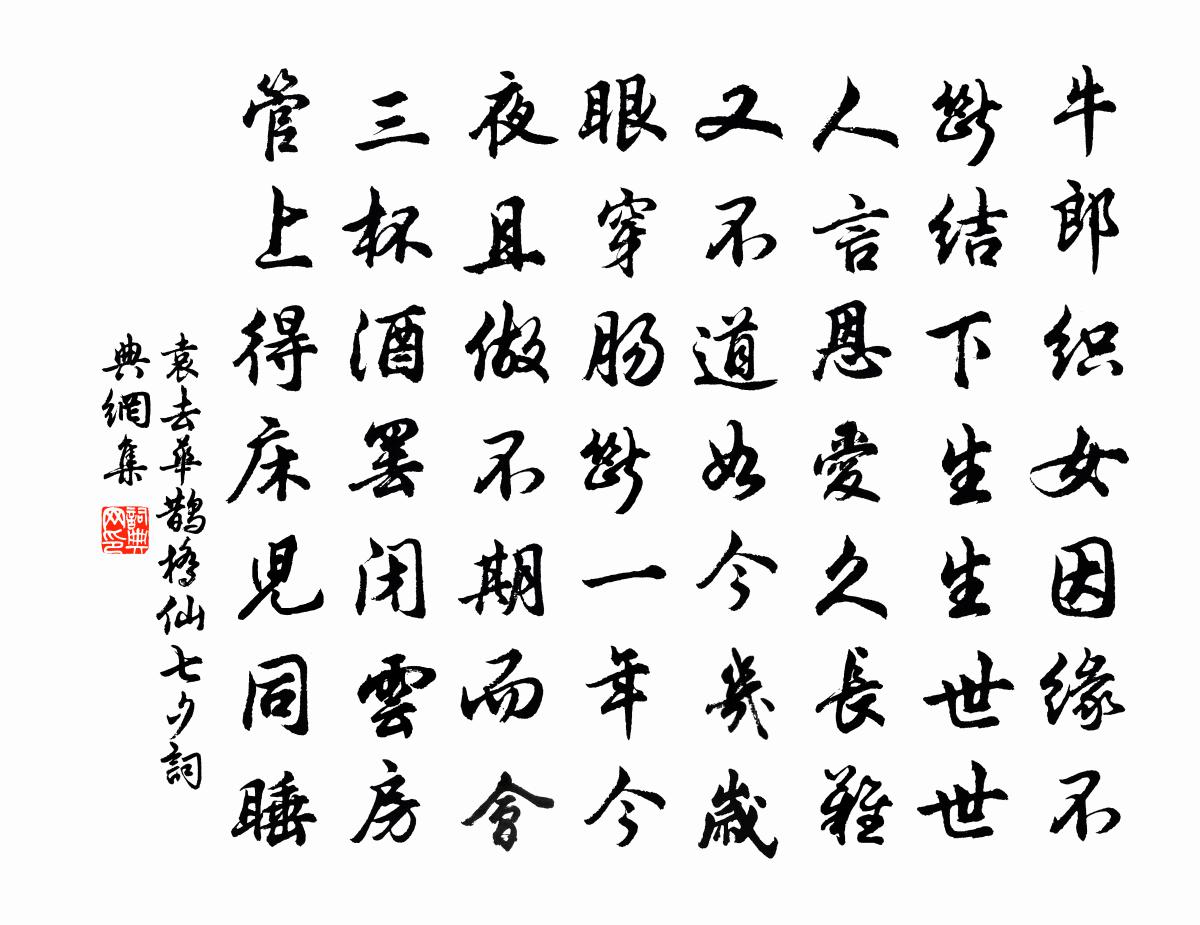 牛郎织女因缘不
断结下生生世世
人言恩爱久长难
又不道如今几歳
眼穿肠断一年今
夜且做不期而會
三杯酒罢闭雲房
管上得床兒同睡
袁去華鹊橋仙七夕詞
典網集
詞典网印